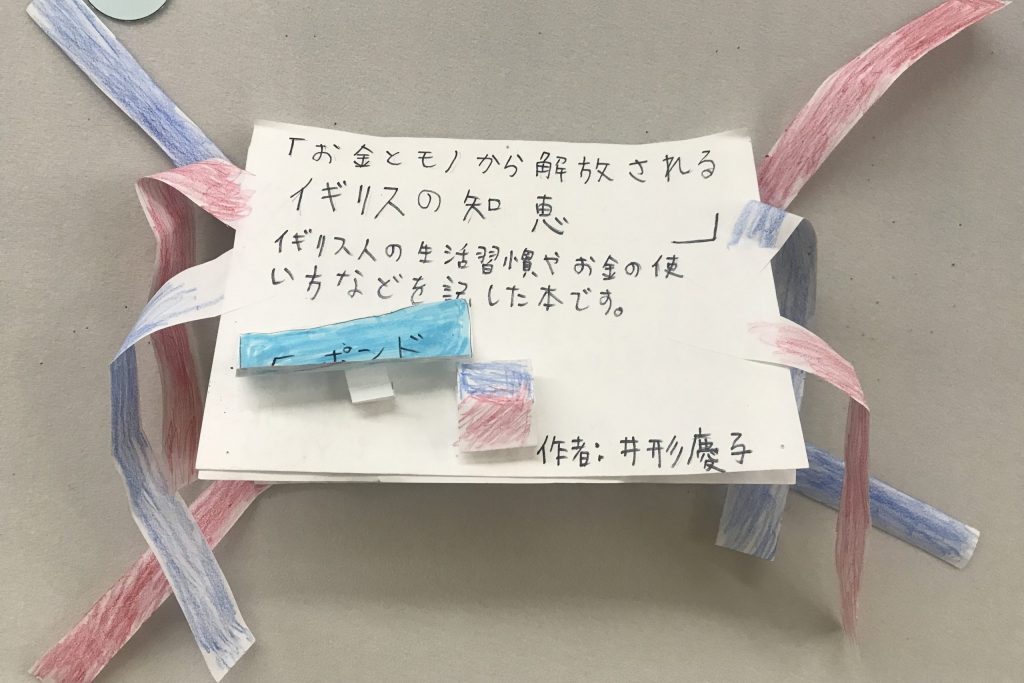 「お金とモノから解放される
イギリスの知恵」
イギリス人の生活習慣やお金の使
い方などを記した本です。
ポンド
作者:井形慶子